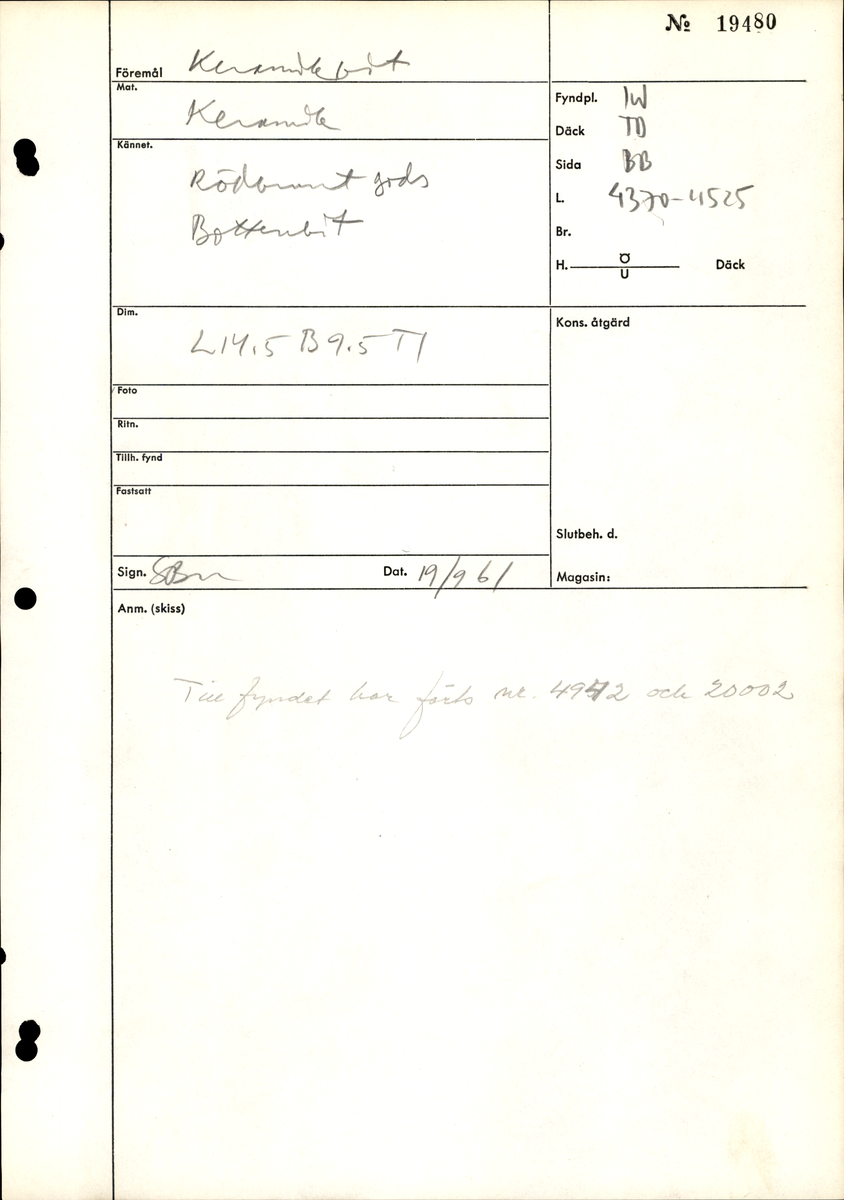 № 19480
Föremål Keramikbit
Mat. Keramik
Kännet.
Rödbrunt gods
Bottenbit
Fyndpl. IW
Däck TD
Sida BB
L. 4370-4525
Br.
H. Ö U Däck
Dim. L 14.5 B 9.5 T 1
Kons. åtgärd
Foto
Ritn.
Tillh. fynd
Fastsatt
Slutbeh. d.
Sign. Dat. 19/9 61
Magasin:
Anm. (skiss)
Till fyndet har förts nr. och 20002